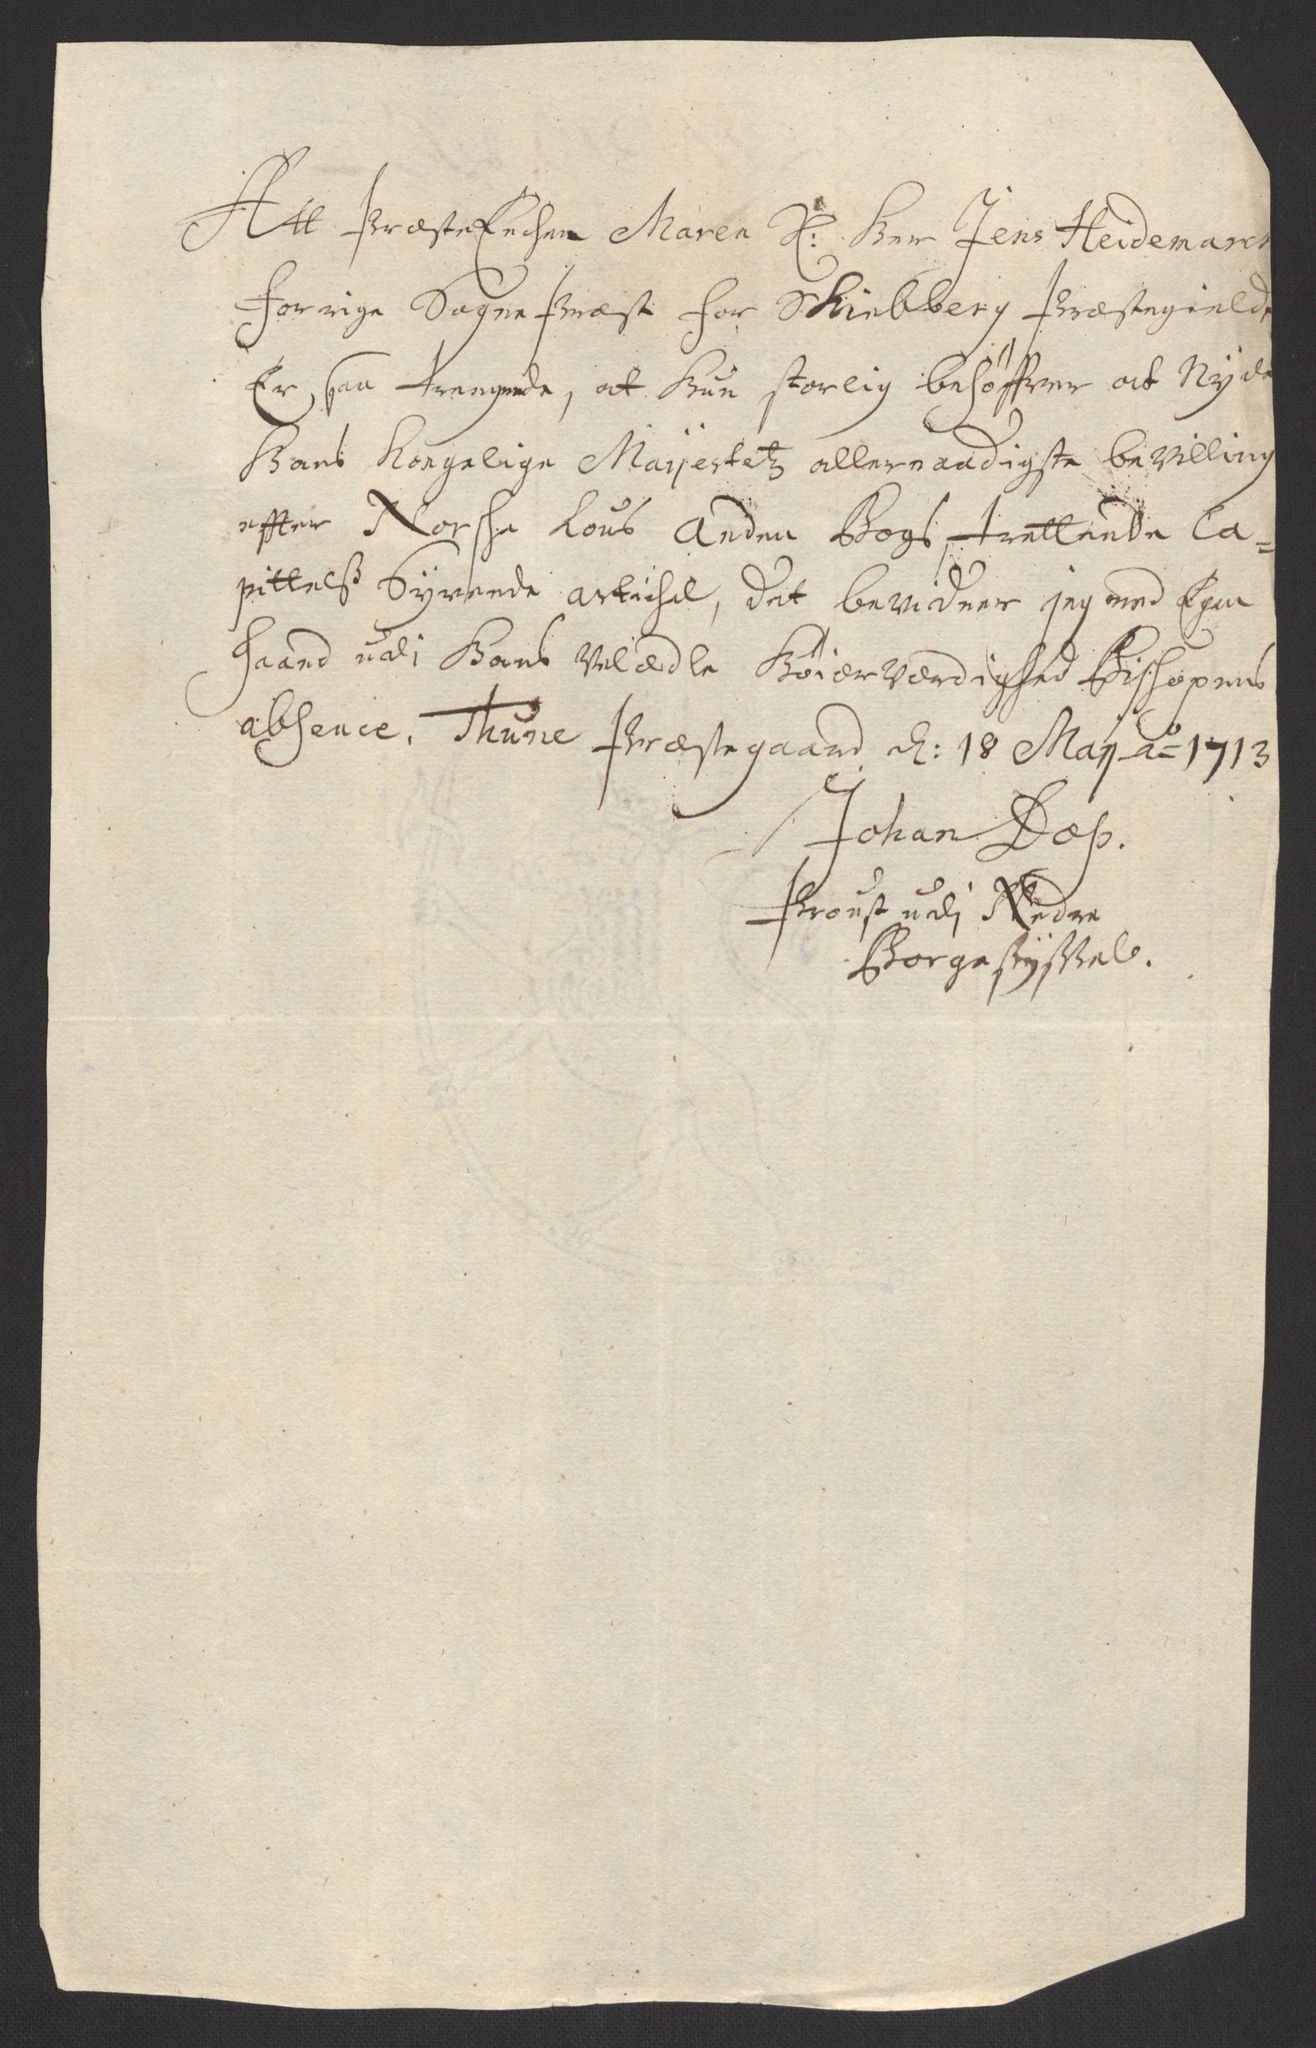 Att PræsteEnchen Maren S: Her Jens Heidemarck
forrige Sogne Præst for Skiebberg Præstegield
Er saa trengende, at hun storlig behøffver at Nyde
Hans Kongelige Mayestetz allernaadigste bevilling
effter Norske Lous Anden Bogs, trettende Ca=
pittelß Syvende artichel, det bevidner jeg med Egen
haand udi Hans velædle Høiærværdighed Bischopens
absence. Thune Præstegaard d: 18 Maij ao= 1713
Johan
Proust udi Nedre
Borgesyssel.